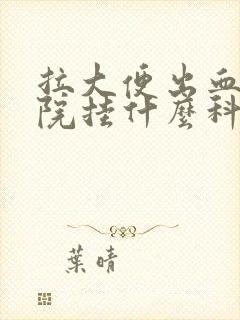 拉大便出血
院挂什麼科
葉晴